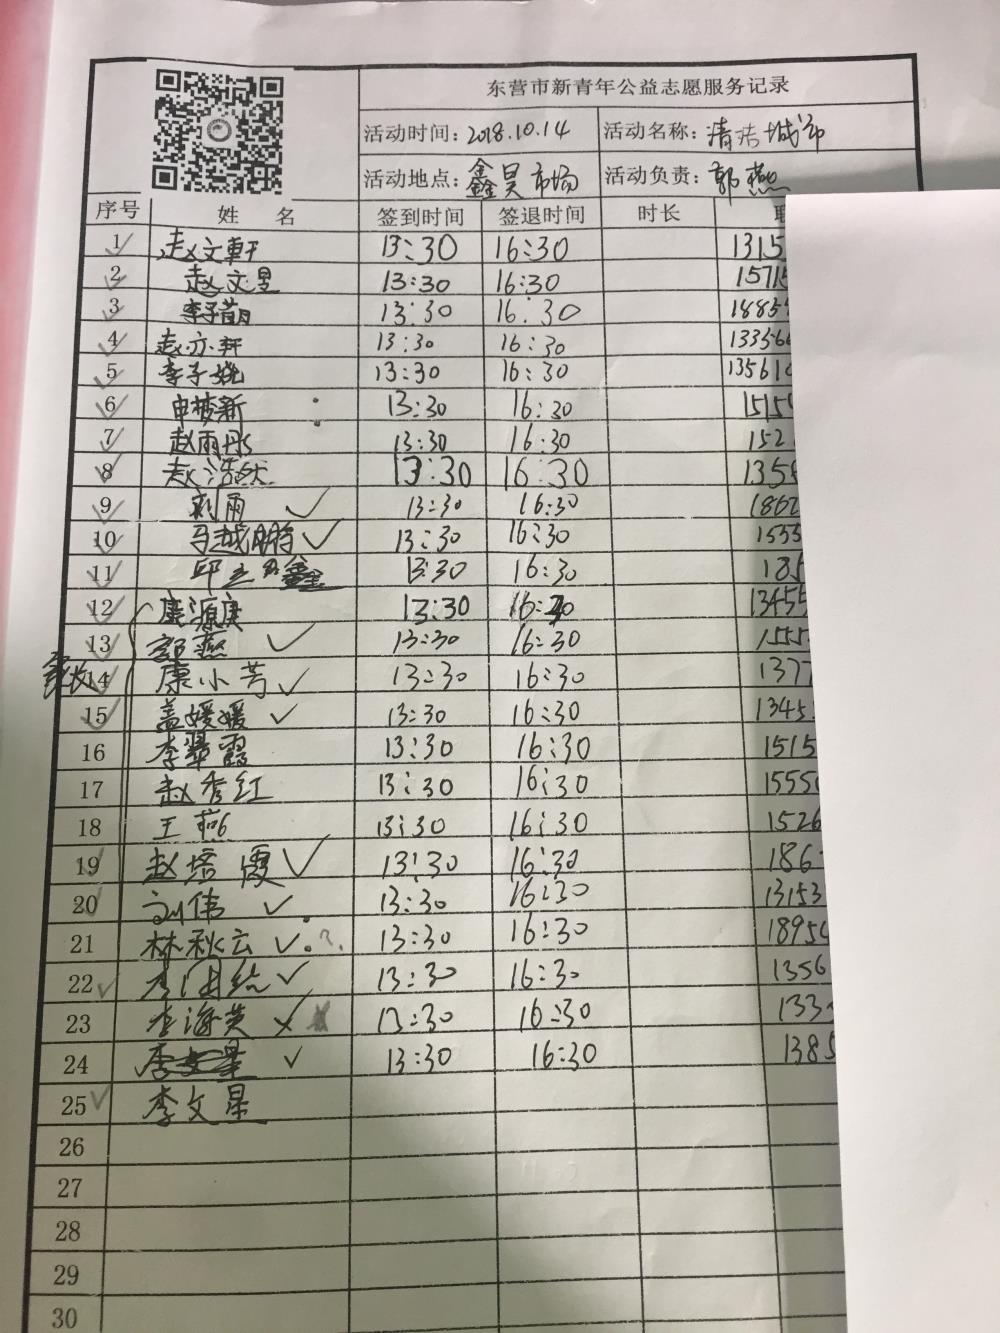 东营市新青年公益志愿服务记录
活动时间: 2018.10.14 活动名称: 清洁城市
活动地点: 鑫昊市场 活动负责: 郭燕
序号 姓 名 签到时间 签退时间 时长
1 赵文軒 13:30 16:30 1315
2 赵文昱 13:30 16:30 15715
3 李子萌 13:30 16:30 1885
4 赵亦轩 13:30 16:30 133566
5 李子姚 13:30 16:30 13561
6 申梦新 13:30 16:30 1515
7 赵雨彤 13:30 16:30 152
8 赵浩然 13:30 16:30 1358
9 刘雨 13:30 16:30 1862
10 马越鹏 13:30 16:30 1535
11 邱立鑫 13:30 16:30 185
12 康源庚 13:30 16:30 13455
家长
13 郭燕 13:30 16:30 1555
14 康小芳 13:30 16:30 1377
15 盖媛媛 13:30 16:30 1345
16 李翠霞 13:30 16:30 1515
17 赵秀红 13:30 16:30 1555
18 王燕 13:30 16:30 1526
19 赵培霞 13:30 16:30 186
20 刘伟 13:30 16:30 13153
21 林秋云 ?. 13:30 16:30 1895
22 13:30 16:30 1356
23 李海英 13:30 16:30 133
24 13:30 16:30 1385
25 李文星
26
27
28
29
30